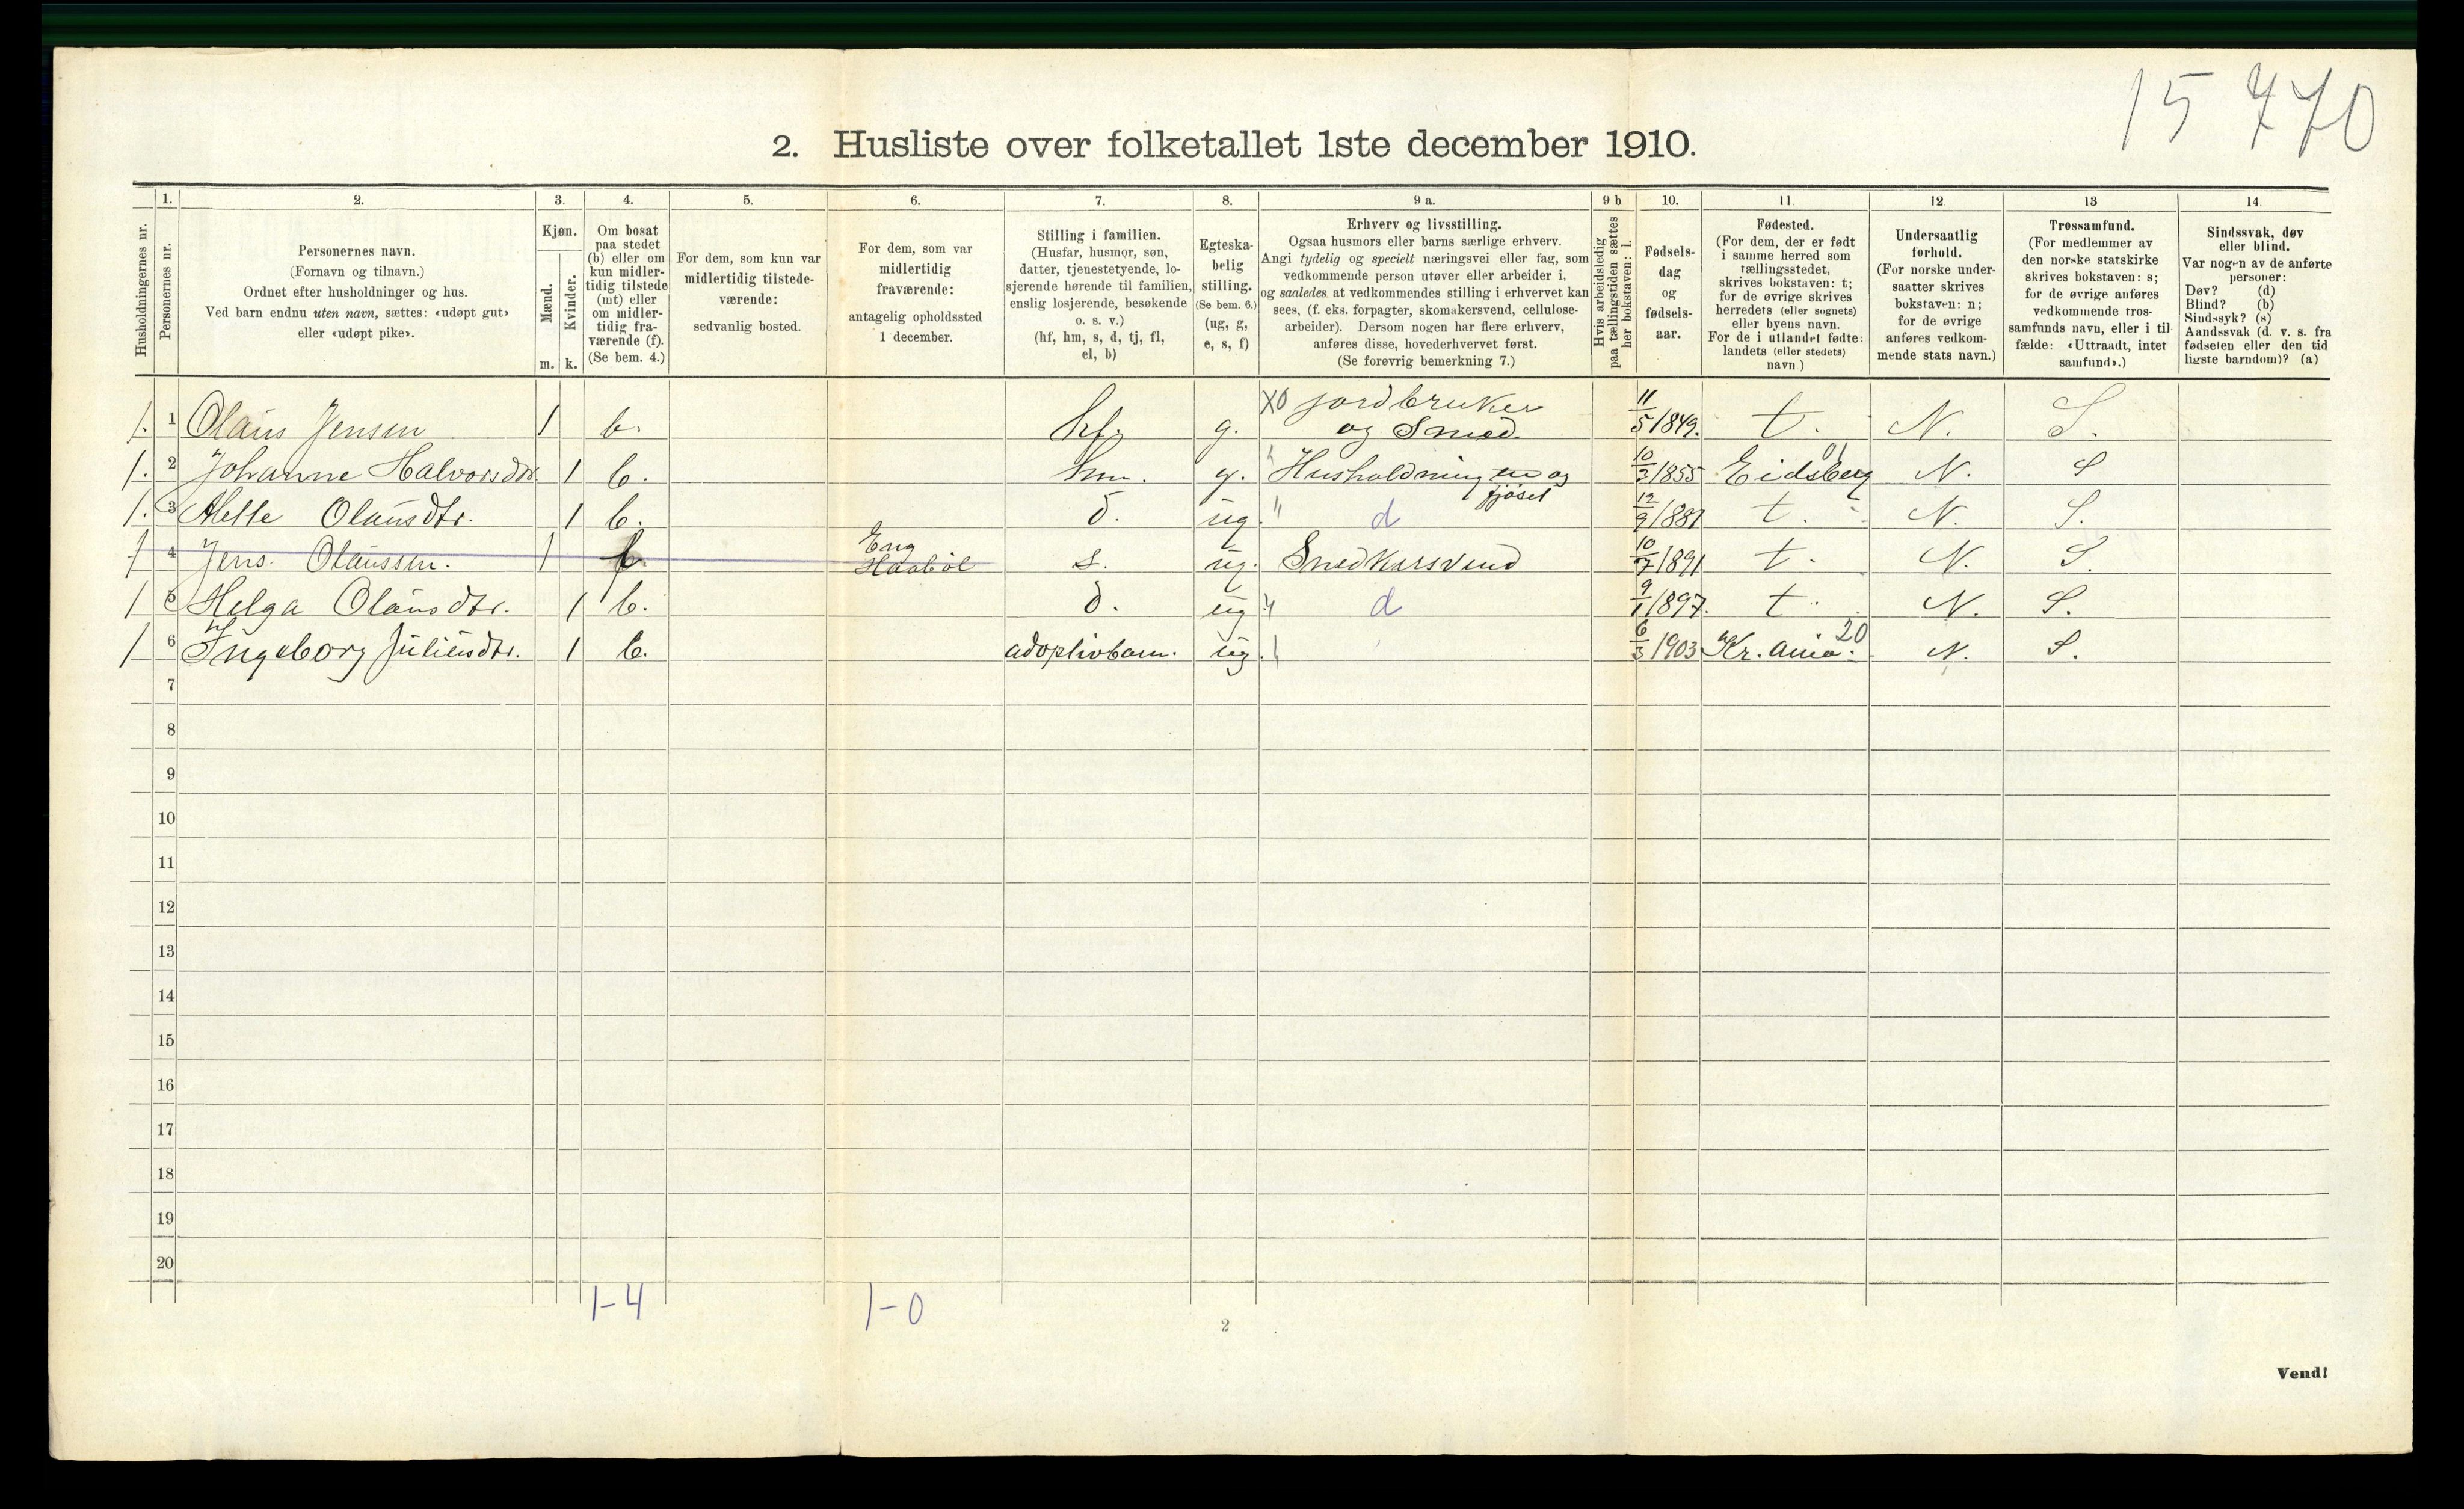 15 770
2. Husliste over folketallet 1ste december 1910.
Husholdningernes nr.
1.
Personernes nr.
2.
Personernes navn.
(Fornavn og tilnavn.)
Ordnet efter husholdninger og hus.
Ved barn endnu uten navn, sættes: «udøpt gut»
eller «udøpt pike».
3.
Kjøn.
Mænd.
Kvinder.
m. k.
4.
Om bosat
paa stedet
(b) eller om
kun midler-
tidig tilstede
(mt) eller
om midler-
tidig fra-
værende (f).
(Se bem. 4.)
5.
For dem, som kun var
midlertidig tilstede-
værende:
sedvanlig bosted.
6.
For dem, som var
midlertidig
fraværende:
antagelig opholdssted
1 december.
7.
Stilling i familien.
(Husfar, husmor, søn,
datter, tjenestetyende, lo-
sjerende hørende til familien,
enslig losjerende, besøkende
o. s. v.)
(hf, hm, s, d, tj, fl,
el, b)
8.
Egteska-
belig
stilling.
(Se bem. 6.)
(ug, g,
e, s, f)
9 a.
Erhverv og livsstilling.
Ogsaa husmors eller barns særlige erhverv.
Angi tydelig og specielt næringsvei eller fag, som
vedkommende person utøver eller arbeider i,
og saaledes at vedkommendes stilling i erhvervet kan
sees, (f. eks. forpagter, skomakersvend, cellulose-
arbeider). Dersom nogen har flere erhverv,
anføres disse, hovederhvervet først.
(Se forøvrig bemerkning 7.)
9 b
Hvis arbeidsledig
paa tællingstiden sættes
her bokstaven: l.
10.
Fødsels-
dag
og
fødsels-
aar.
11.
Fødested.
(For dem, der er født
i samme herred som
tællingsstedet,
skrives bokstaven: t;
for de øvrige skrives
herredets (eller sognets)
eller byens navn.
For de i utlandet fødte:
landets (eller stedets)
navn)
12
Undersaatlig
forhold.
(For norske under-
saatter skrives
bokstaven: n;
for de øvrige
anføres vedkom-
mende stats navn.)
13
Trossamfund.
(For medlemmer av
den norske statskirke
skrives bokstaven: s;
for de øvrige anføres
vedkommende tros-
samfunds navn, eller i til
fælde: «Uttraadt, intet
samfund».)
14.
Sindssvak, døv
eller blind.
Var nogen av de anførte
personer:
Døv? (d)
Blind? (b)
Sindssyk? (s)
Aandssvak (d. v. s. fra
fødselen eller den tid
ligste barndom)? (a)
1. 1 Olaus Jensen 1 b. hf. g. X0 jordbruker og Smed. 11/5 1849. t. N. S.
1. 2 Johanne Halvorsdtr. 1 b. hm. g. Husholdning og fjøset 10/3 1855 Eidsberg 01 N. S
1. 3 Mette Olausdtr. 1 b. d. ug. " d 12/9 1881 t. N. S.
1 4 Jens Olaussen. 1 Eng Haabøl s. ug. Snedkersvend 10/7 1891 t. N. S.
1 5 Helga Olausdtr. 1 b. d. ug " d 9/1 1897. t. N. S.
1 6 Ingeborg Juliusdtr. 1 b. adoptivbarn. ug. 6/3 1903 Kr.ania. 20 N. S.
7
8
9
10
11
12
13
14
15
16
17
18
19
20
1-4 1-0
2
Vend!